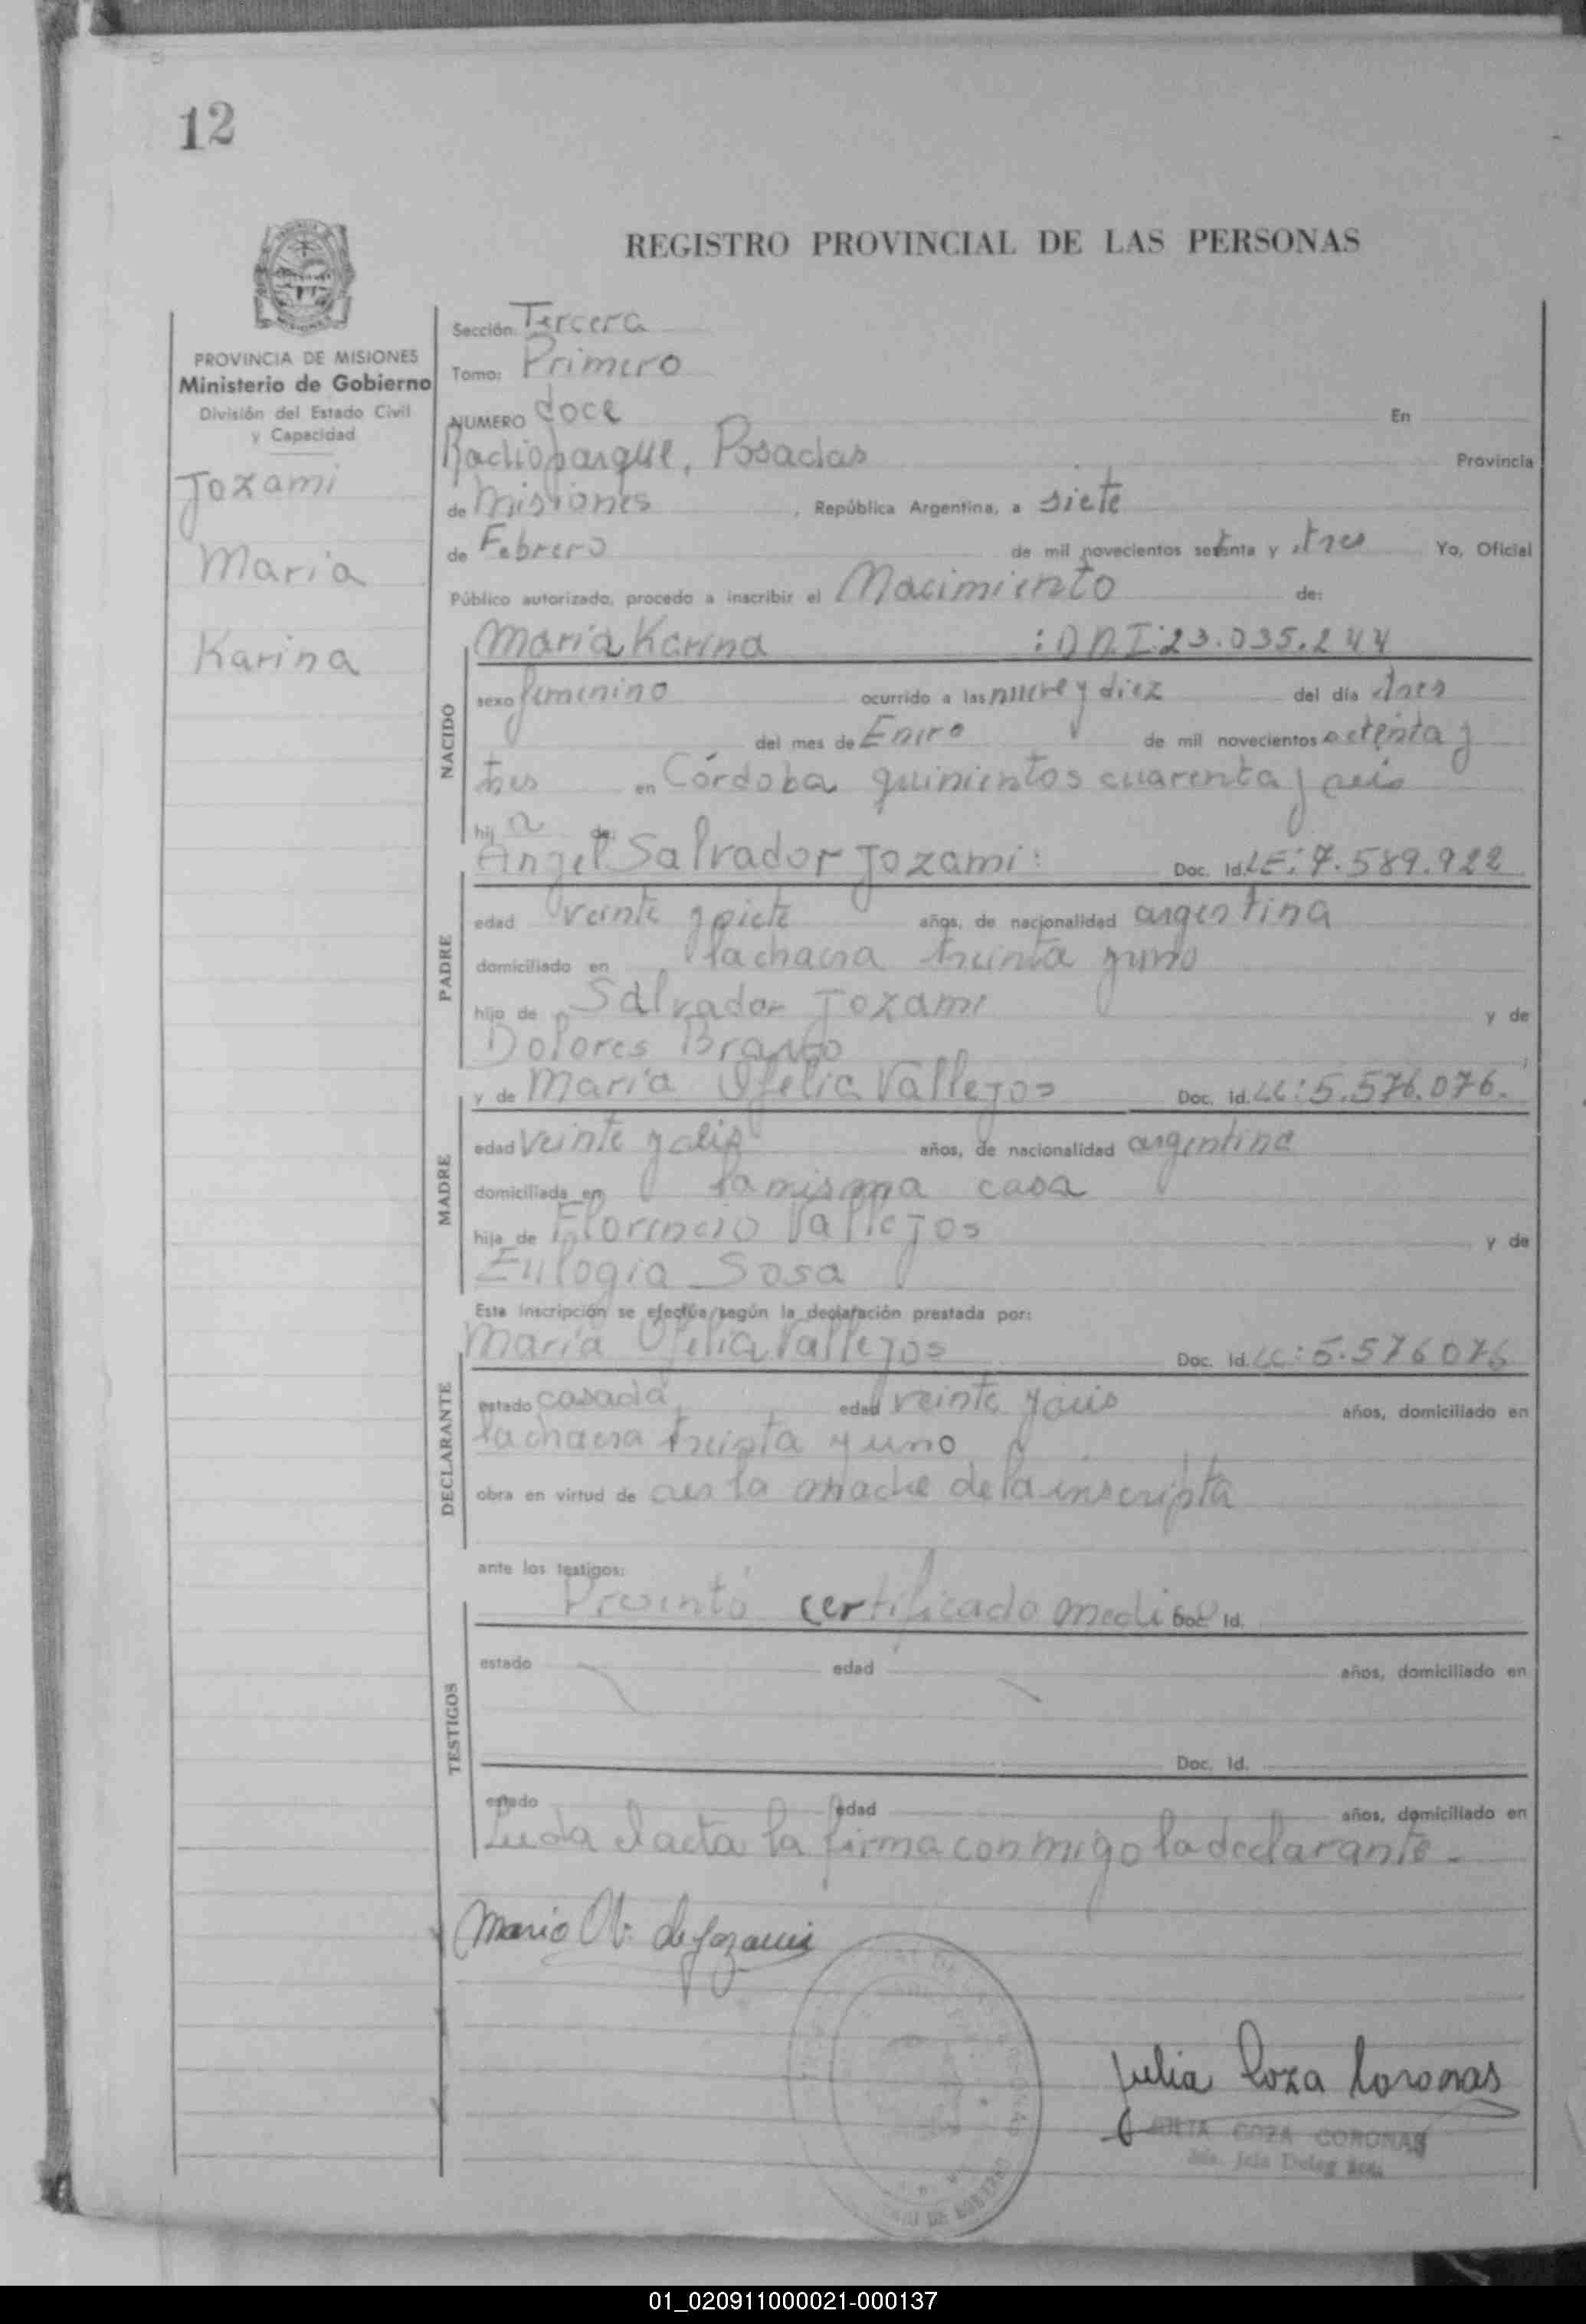 12
REGISTRO PROVINCIAL DE LAS PERSONAS
PROVINCIA DE MISIONES
Ministerio de Gobierno
División del Estado Civil
y Capacidad
Jozami
Maria
Karina
Sección: Tercera
Tomo: Primero
NUMERO doce En
Radioparque, Posadas Provincia
de Misiones, República Argentina, a siete
de Febrero de mil novecientos setenta y tres Yo, Oficial
Público autorizado, procedo a inscribir el Nacimiento de:
NACIDO
María Karina :DNI:23.035.244
sexo femenino ocurrido a las nueve y diez del día tres
del mes de Enero de mil novecientos setenta y
tres en Córdoba quinientos cuarenta y seis
hij a de:
PADRE
Angel Salvador Jozami: Doc. Id. LE: 7.589.922
edad veinte y siete años, de nacionalidad argentina
domiciliado en la chacra treinta y uno
hijo de Salvador Jozami y de
Dolores
MADRE
y de María Ofelia Vallejos Doc. Id. LC: 5.576.076.
edad veinte y seis años, de nacionalidad argentina
domiciliada en la misma casa
hija de Florencio Vallejos y de
Eulogia Sosa
Esta inscripción se efectúa según la declaración prestada por:
DECLARANTE
María Ofelia Vallejos Doc. Id. LC: 5.576076
estado casada edad veinte y seis años, domiciliado en
la chacra treinta y uno
obra en virtud de ser la madre de la inscripta
ante los testigos:
TESTIGOS
Presentó certificado medico Doc. Id.
estado edad años, domiciliado en
Doc. Id.
estado edad años, domiciliado en
Leida el acta la firma conmigo la declarante.-
Maria O V. de Jozami
Julia Coza Coronas
JULIA COZA CORONAS
01_020911000021-000137